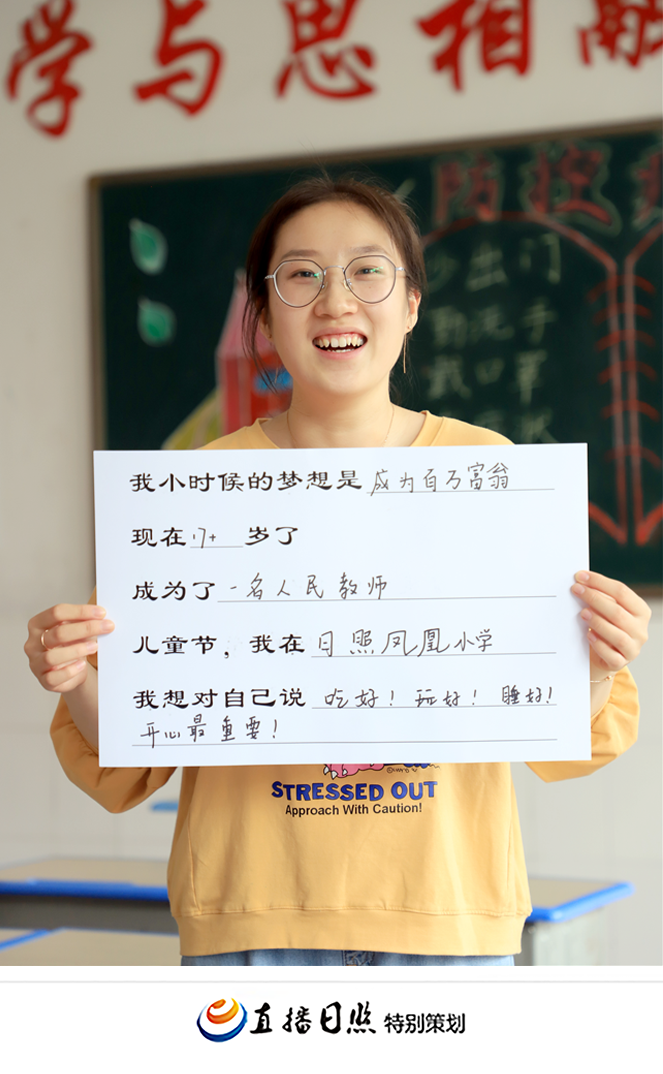 学与思相融
防控
出门
勤洗手
戴口罩
我小时候的梦想是成为百万富翁
现在17+岁了
成为了一名人民教师
儿童节，我在日照凤凰小学
我想对自己说 吃好！玩好！睡好！
开心最重要！
STRESSED OUT
Approach With Caution!
直播日照 特别策划